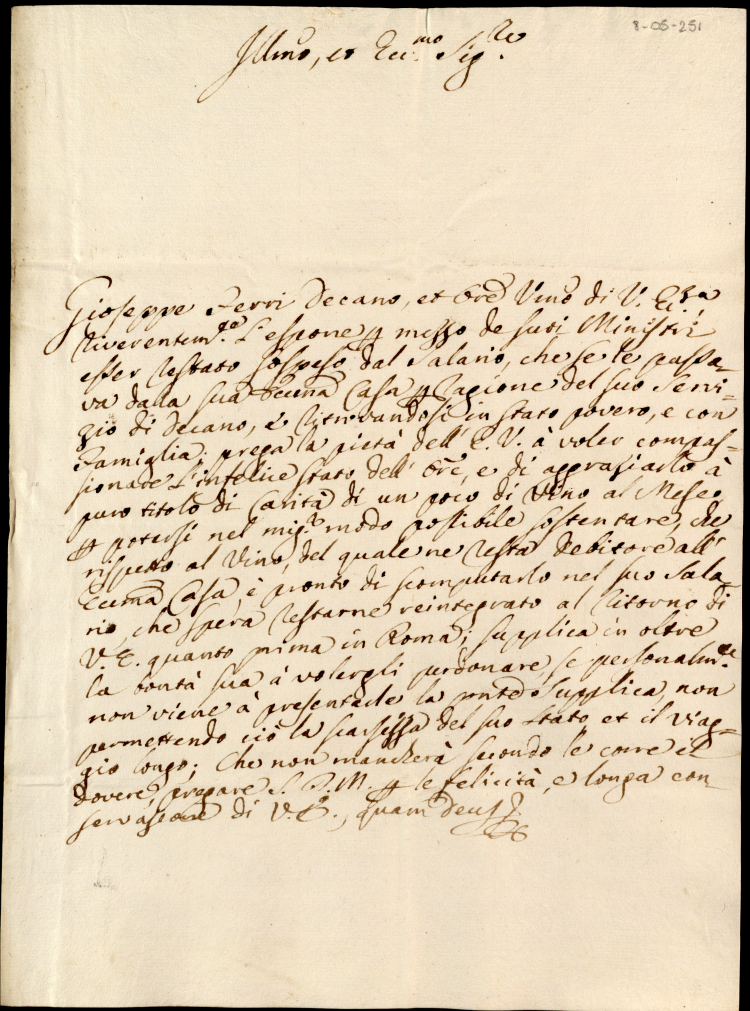 8-05-251
Illmo, et Ecc.mo Sig.re
Gioseppe Ferri Decano, et Ore Umo di V. Ecc.za
riverentem.te L'espone p mezzo de suoi Ministri
esser restato sospeso dal salario, che se le passa-
va dalla sua Eccma Casa p ragione del suo servi-
zio di decano, e ritrovandosi in stato povero, e con
Famiglia; prega la pietà dell'E. V. à voler compas-
sionare l'infelice stato dell'Ore, e di aggraziarlo à
puro titolo di Carità di un poco di Vino al Mese
p potersi nel mig.re modo possibile sostentare, che
rispetto al Vino, del quale ne resta debitore all'
Eccma Casa, è pronto di scomputarlo nel suo Sala-
rio, che spera restarne reintegrato al ritorno di
V. E. quanto prima in Roma; supplica in oltre
la bontà sua à volergli perdonare, se personalm.te
non viene à presentarle la pnte supplica, non
permettendo ciò la scarsezza del suo stato et il viag-
gio longo; Che non mancherà secondo le corre il
dovere, pregare S. D. M. p le felicità, e longa con-
servazione di V. E., quam Deus